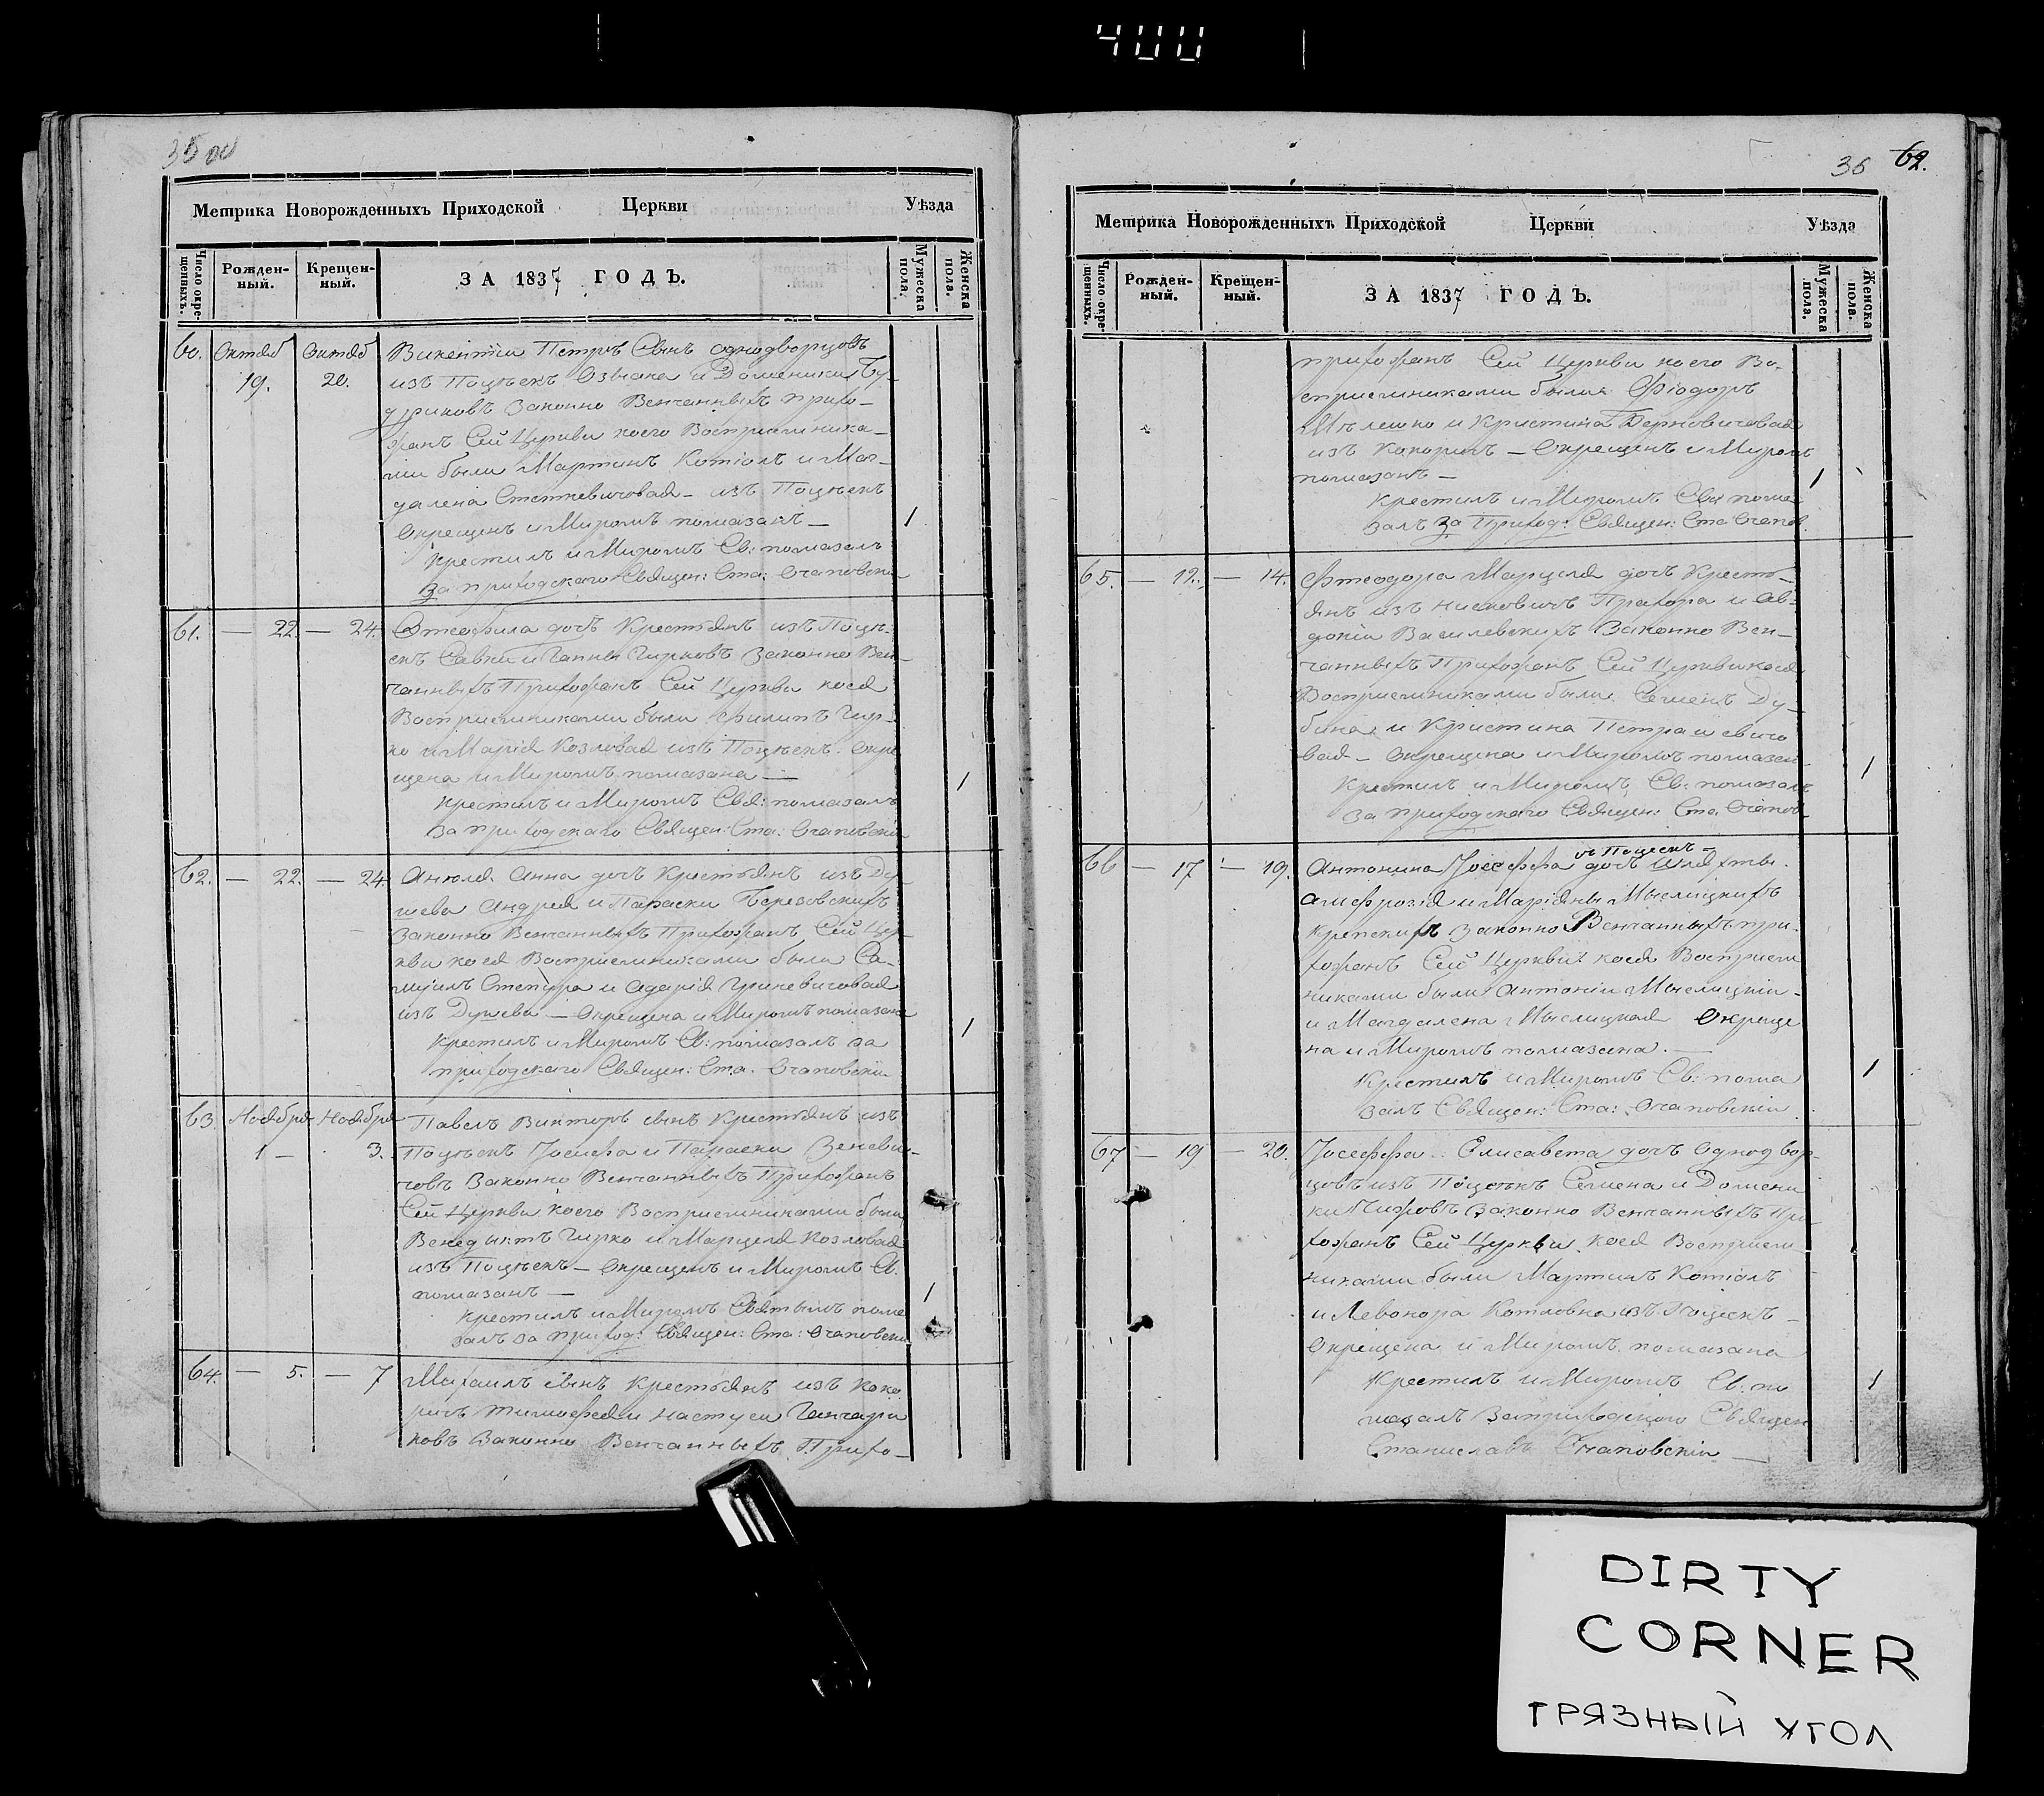 400
35 об
Метрика Новорожденныхъ Приходской Церкви Уѣзда
Число окрещенныхъ.
Рожденный.
Крещенный.
ЗА 1837 ГОДЪ.
Мужеска пола.
Женска пола.
60. Октяб 19. Октяб 20.
Викентіи Петръ Сынъ однодворцовъ
изъ и Доменики Бу-
законно Венчанныхъ прихо-
жанъ Сей Церкви коего Восприемника-
ми были Мартинъ Котіолъ и Маг-
далена Стеткевичовая – изъ
окрещенъ и Миромъ помазанъ —
Крестилъ и Миромъ Св: помазалъ
За приходскаго Священ: Ста: Очаповскіи
1
61. — 22 — 24.
дочь Крестьянъ изъ
Савки и Ганны Чирковъ Законно Вен-
чанныхъ Прихожанъ Сей Церкви коея
Восприемниками были Филипъ Чир-
ко и Марія Козловая изъ Окре
щена и Миромъ помазана —
Крестилъ и Миромъ Свя: помазалъ
За приходскаго Священ: Ста: Очаповскіи
1
62. — 22. — 24.
Анна дочь Крестьянъ изъ Ду
шева Андрея и Параски Березовскихъ
Законно Венчанныхъ Прихожанъ Сей Цер
кви коея Восприемниками были Са-
муилъ и Гриневичовая
изъ Душева — Окрещена и Миромъ помазана
Крестилъ и Миромъ Св: помазалъ за
приходскаго Священ: Ста: Очаповскіи
1
63. Ноября 1 — Ноября 3.
Павелъ Викторъ сынъ Крестьянъ изъ
Іосифа и Параски Зеневи-
човъ Законно Венчанныхъ Прихожанъ
Сей Церкви коего Восприемниками были
Венедыктъ Чирко и Марцеля Козловая
изъ — Окрещенъ и Миромъ Св.
помазанъ —
Крестилъ и Миромъ Святымъ пома
залъ за приход: Священ: Ста: Очаповскіи
1
64. — 5. — 7
Михаилъ сынъ Крестьянъ изъ Коко
ричъ Тимофея и Настуси Ганчари
ковъ Законно Венчанныхъ Прихо-
36 62.
Метрика Новорожденныхъ Приходской Церкви Уѣзда
Число окрещенныхъ.
Рожденный.
Крещенный.
ЗА 1837 ГОДЪ.
Мужеска пола.
Женска пола.
прихожанъ Сей Церкви коего Во-
сприемниками были Фіодоръ
и Кристина
изъ Кокоричъ — Окрещенъ и Миромъ
помазанъ —
Крестилъ и Миромъ Свя пома
залъ За Приход: Священ: Ста Очапов
1
65. — 12. — 14.
Марцеля дочь Кресть-
янъ изъ Прахора и Ав-
докіи Василевскихъ Законно Вен-
чанныхъ Прихожанъ Сей Церкви коея
Восприемниками были Семенъ Ду-
бина и Кристина
вая – окрещена и Миромъ помазан
Крестилъ и Миромъ Св: помазалъ
За приходскаго Священ: Ста. Очапов
1
66 — 17 — 19.
Антонина Іосефа дочь Шляхты
Амефрозія и Маріяны Мыслицкихъ
законно Венчанныхъ при-
хожанъ Сей Церкви коея Восприем
никами были Антоніи Мыслицкіи -
и Магдалена Мыслицкая Окреще
на и Миромъ помазана. —
Крестилъ и Миромъ Св: пома
залъ Священ: Ста: Очаповскіи
1
67 — 19 — 20.
Елисавета дочь Однодвор-
цовъ изъ Семена и Домени
ки законно Венчанныхъ При
хожанъ Сей Церкви коея Восприем
никами были Мартинъ Котіолъ
и Левонора Котловна изъ
Окрещена и Миромъ помазана
Крестилъ и Миромъ Св: по
мазалъ За приходскаго Священ
Станиславъ Очаповскіи —
1
DIRTY
CORNER
ГРЯЗНЫЙ УГОЛ